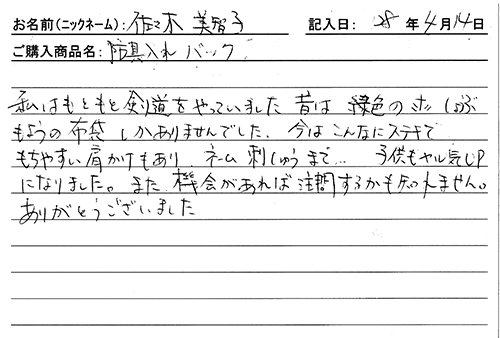 お名前(ニックネーム): 佐々木 美智子 記入日: 28 年 4 月 14 日
ご購入商品名: 防具入れ バック
私はもともと剣道をやっていました 昔は 緑色の しょうぶ
もようの 布袋 しかありませんでした、今はこんなにステキで
もちやすい肩かけもあり、ネーム刺しゅうまで… 子供もヤル気UP
になりました。また 機会があれば注問するかも知れません。
ありがとうございました